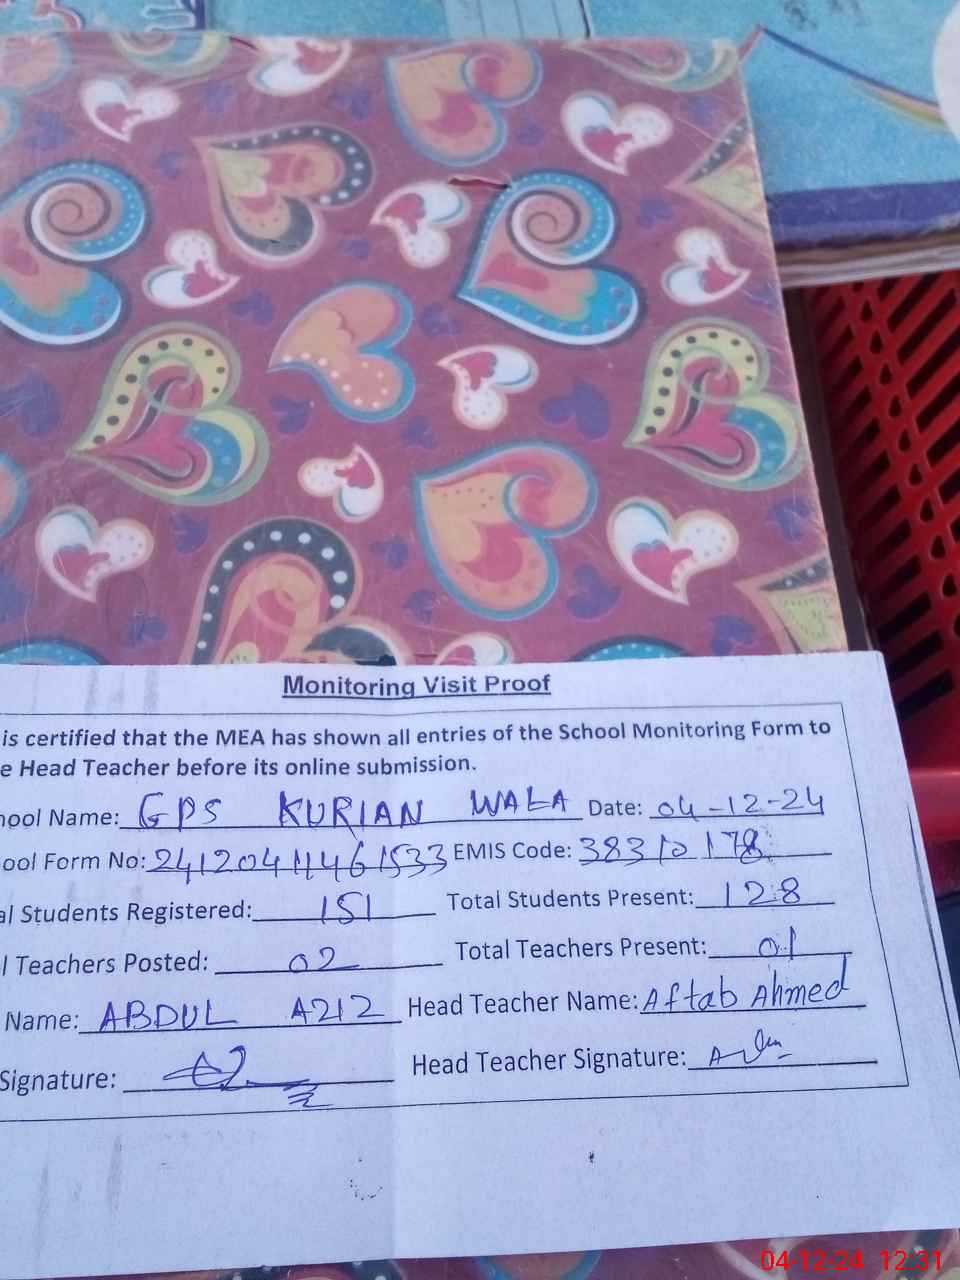 Monitoring Visit Proof
is certified that the MEA has shown all entries of the School Monitoring Form to
e Head Teacher before its online submission.
hool Name: GPS KURIAN WALA Date: 04-12-24
ool Form No: 2412041146 1533 EMIS Code: 38310178
al Students Registered: 151 Total Students Present: 128
l Teachers Posted: 02 Total Teachers Present: 01
Name: ABDUL AZIZ Head Teacher Name: Aftab Ahmed
Signature: Head Teacher Signature:
04-12-24 12:31